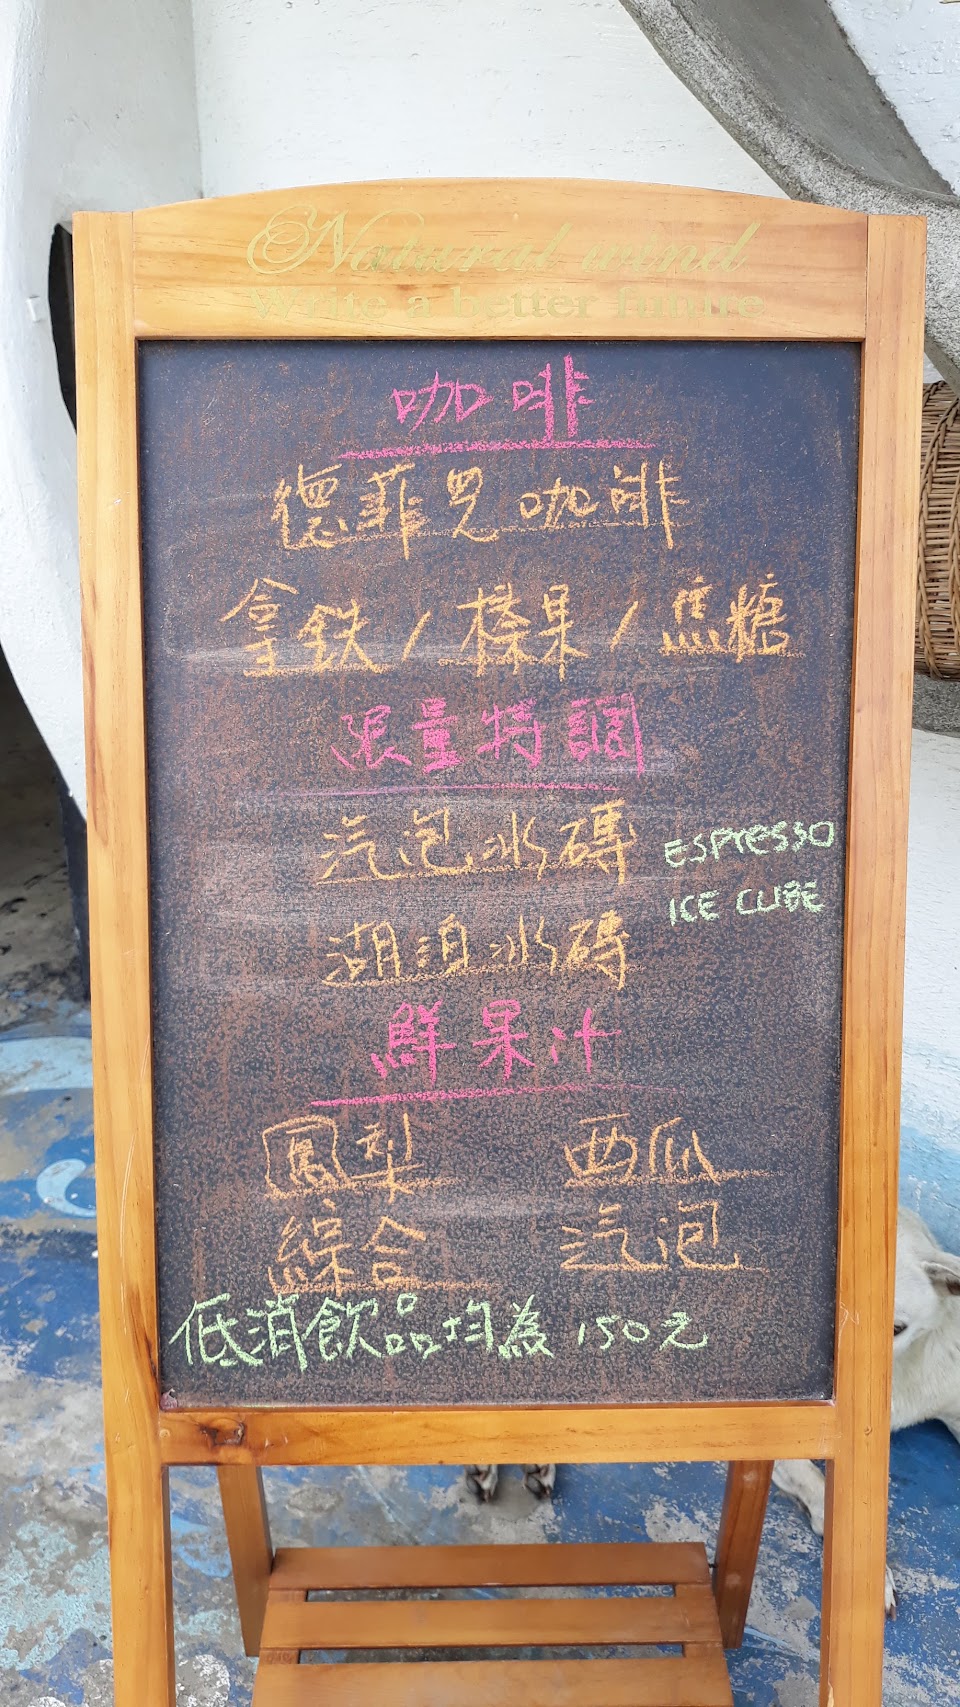 Natural wind
Write a better future
咖啡
德菲兒咖啡
拿鉄/榛果/焦糖
限量特調
汽泡冰磚
ESPRESSO
ICE CUBE
湖泊冰磚
鮮果汁
鳳梨 西瓜
綜合 汽泡
低消飲品均為150元